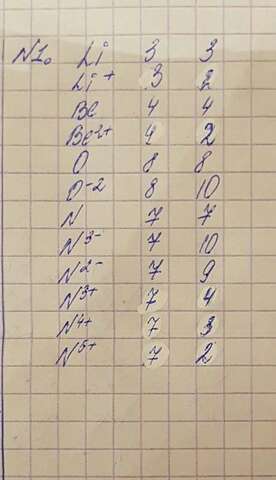 N1. Li 3 3
Li⁺ 3 2
Be 4 4
Be²⁺ 4 2
O 8 8
O⁻² 8 10
N 7 7
N³⁻ 7 10
N²⁻ 7 9
N³⁺ 7 4
N⁴⁺ 7 3
N⁵⁺ 7 2